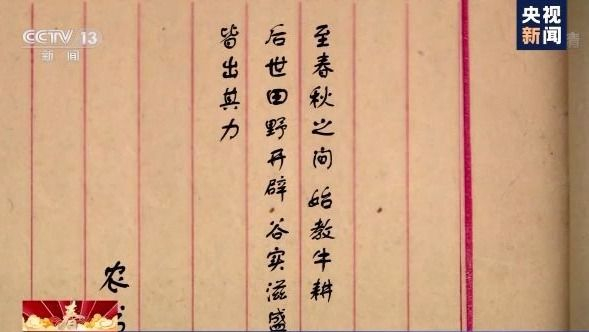 CCTV 13
新闻
央视
新闻
至春秋之间 始教牛耕
后世田野开辟 谷实滋盛
皆出其力
农书